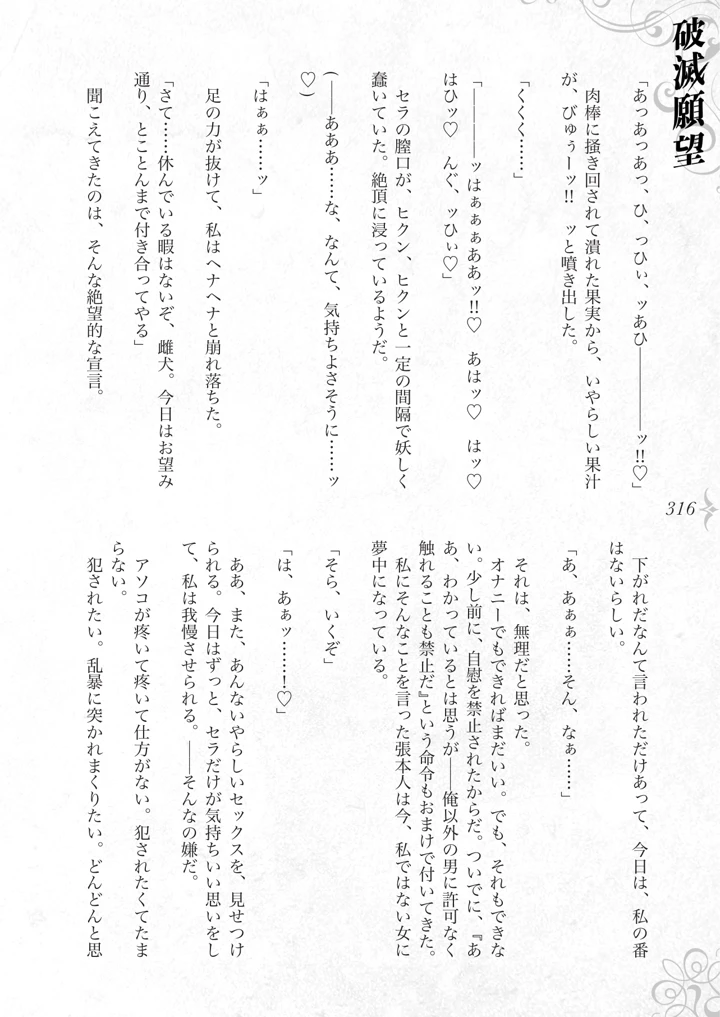 破滅願望
「あっあっあっ、ひ、っひぃ、ッあひ―――――ッ!!♡」
　肉棒に掻き回されて潰れた果実から、いやらしい果汁
が、びゅぅーッ!!　ッと噴き出した。
「くくく……」
「――――ッはぁぁぁああッ!!♡　あはッ♡　はッ♡
はひッ♡　んぐ、ッひぃ♡」
　セラの膣口が、ヒクン、ヒクンと一定の間隔で妖しく
蠢いていた。絶頂に浸っているようだ。
(――あああ……な、なんて、気持ちよさそうに……ッ
♡)
「はぁぁ……ッ」
　足の力が抜けて、私はヘナヘナと崩れ落ちた。
「さて……休んでいる暇はないぞ、雌犬。今日はお望み
通り、とことんまで付き合ってやる」
　聞こえてきたのは、そんな絶望的な宣言。
316
　下がれだなんて言われただけあって、今日は、私の番
はないらしい。
「あ、あぁぁ……そん、なぁ……」
　それは、無理だと思った。
　オナニーでもできればまだいい。でも、それもできな
い。少し前に、自慰を禁止されたからだ。ついでに、『あ
あ、わかっているとは思うが――俺以外の男に許可なく
触れることも禁止だ』という命令もおまけで付いてきた。
　私にそんなことを言った張本人は今、私ではない女に
夢中になっている。
「そら、いくぞ」
「は、あぁッ……!♡」
　ああ、また、あんないやらしいセックスを、見せつけ
られる。今日はずっと、セラだけが気持ちいい思いをし
て、私は我慢させられる。――そんなの嫌だ。
　アソコが疼いて疼いて仕方がない。犯されたくてたま
らない。
　犯されたい。乱暴に突かれまくりたい。どんどんと思